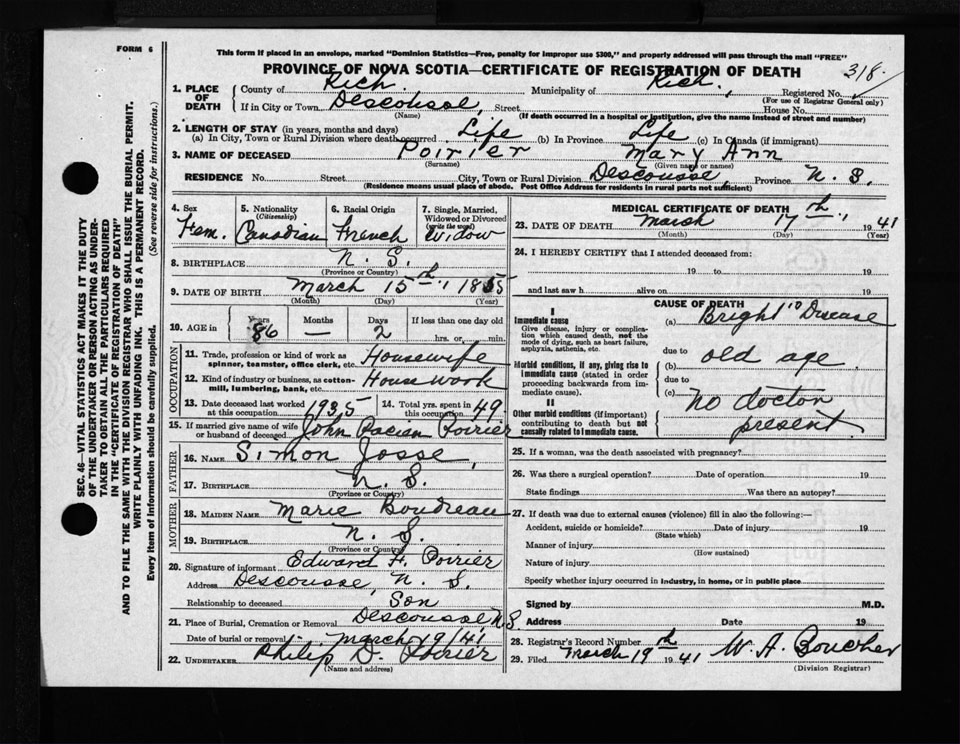 FORM 6
This form if placed in an envelope, marked "Dominion Statistics—Free, penalty for improper use $300," and properly addressed will pass through the mail "FREE"
PROVINCE OF NOVA SCOTIA—CERTIFICATE OF REGISTRATION OF DEATH
318
1. PLACE OF DEATH County of Rich. Municipality of Rich. Registered No.
(For use of Registrar General only)
If in City or Town Descousse, Street House No.
(Name) (If death occurred in a hospital or institution, give the name instead of street and number)
2. LENGTH OF STAY (in years, months and days)
(a) In City, Town or Rural Division where death occurred Life (b) In Province Life (c) In Canada (if immigrant)
3. NAME OF DECEASED Poirier Mary Ann
(Surname) (Given name or names)
RESIDENCE No. Street City, Town or Rural Division Descousse, Province N. S.
(Residence means usual place of abode. Post Office Address for residents in rural parts not sufficient)
4. Sex Fem.
5. Nationality (Citizenship) Canadian
6. Racial Origin French
7. Single, Married, Widowed or Divorced (write the word) Widow
8. BIRTHPLACE N. S.
(Province or Country)
9. DATE OF BIRTH March 15th, 1855
(Month) (Day) (Year)
10. AGE in Years 86 Months — Days 2 If less than one day old hrs. or min.
OCCUPATION
11. Trade, profession or kind of work as spinner, teamster, office clerk, etc. Housewife
12. Kind of industry or business, as cotton-mill, lumbering, bank, etc. House work
13. Date deceased last worked at this occupation 1935
14. Total yrs. spent in this occupation 49
15. If married give name of wife or husband of deceased John Pacien Poirier
FATHER
16. NAME Simon Josse
17. BIRTHPLACE N. S.
(Province or Country)
MOTHER
18. MAIDEN NAME Marie Boudreau
19. BIRTHPLACE N. S.
(Province or Country)
20. Signature of informant Edward H. Poirier
Address Descousse, N. S.
Relationship to deceased Son
21. Place of Burial, Cremation or Removal Descousse, N.S.
Date of burial or removal March 19/41
22. UNDERTAKER Philip D. Poirier
(Name and address)
MEDICAL CERTIFICATE OF DEATH
23. DATE OF DEATH March 17th, 1941
(Month) (Day) (Year)
24. I HEREBY CERTIFY that I attended deceased from:
19 to 19
and last saw h alive on 19
CAUSE OF DEATH
I
Immediate cause
Give disease, injury or complication which caused death, not the mode of dying, such as heart failure, asphyxia, asthenia, etc.
(a) Bright's Disease
due to
Morbid conditions, if any, giving rise to immediate cause (stated in order proceeding backwards from immediate cause).
(b) old age
due to
(c) No doctor present.
II
Other morbid conditions (if important) contributing to death but not causally related to immediate cause.
25. If a woman, was the death associated with pregnancy?
26. Was there a surgical operation? Date of operation 19
State findings Was there an autopsy?
27. If death was due to external causes (violence) fill in also the following:—
Accident, suicide or homicide? Date of injury 19
(State which)
Manner of injury
(How sustained)
Nature of injury
Specify whether injury occurred in industry, in home, or in public place
Signed by M.D.
Address Date 19
28. Registrar's Record Number
29. Filed March 19th 1941 W. A. Boucher
(Division Registrar)
SEC. 46—VITAL STATISTICS ACT MAKES IT THE DUTY
OF THE UNDERTAKER OR PERSON ACTING AS UNDER-
TAKER TO OBTAIN ALL THE PARTICULARS REQUIRED
IN THE "CERTIFICATE OF REGISTRATION OF DEATH" AND TO FILE THE SAME WITH THE DIVISION REGISTRAR WHO SHALL ISSUE THE BURIAL PERMIT.
WRITE PLAINLY WITH UNFADING INK. THIS IS A PERMANENT RECORD.
Every item of information should be carefully supplied. (See reverse side for instructions.)